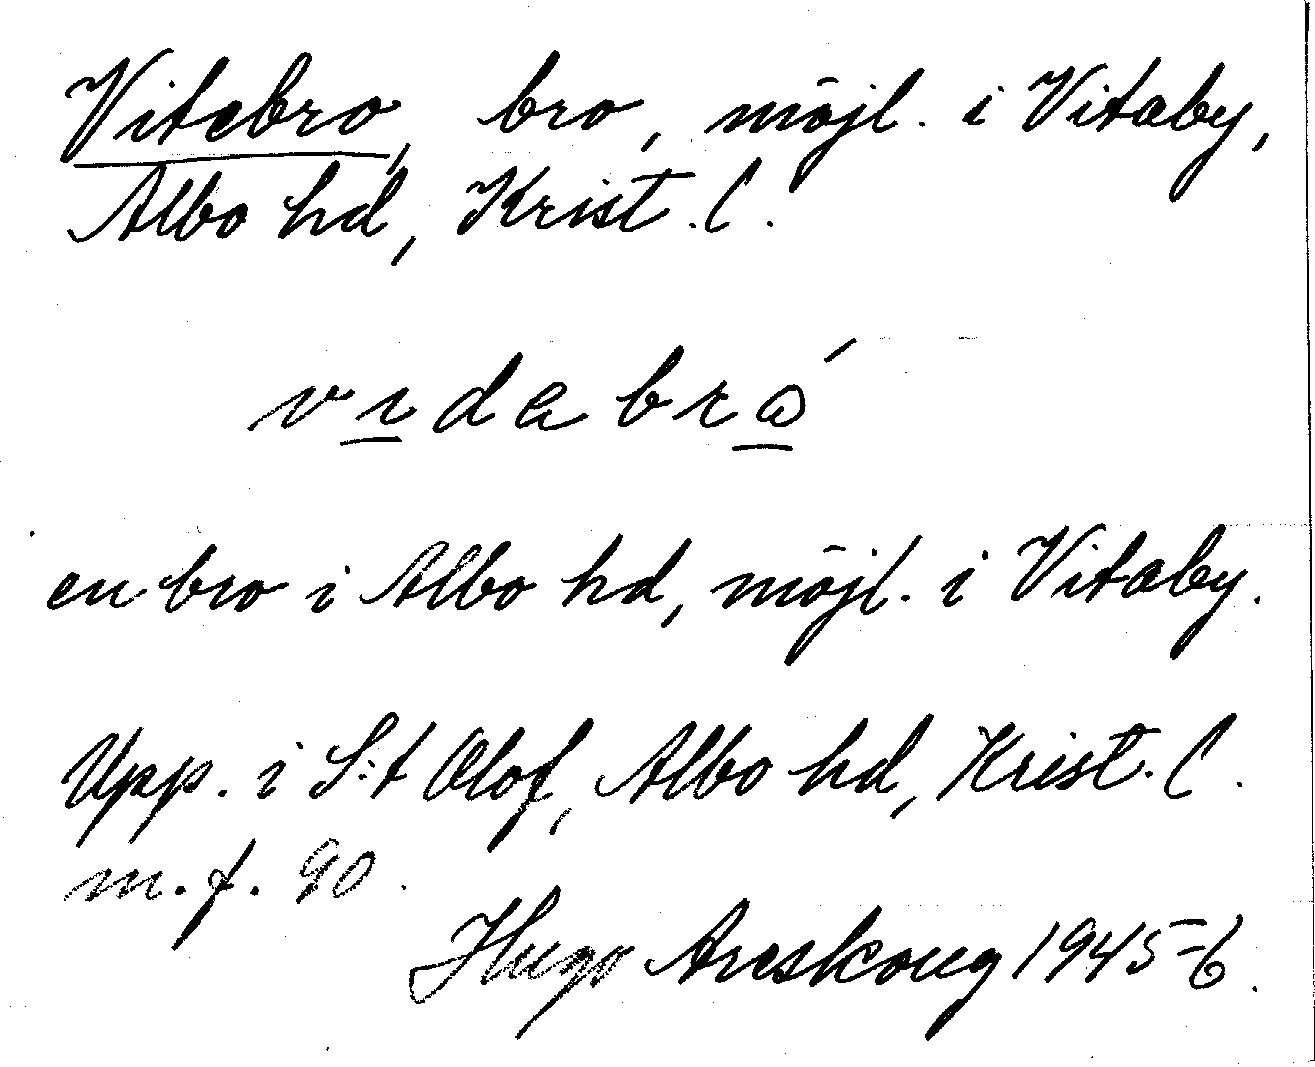 Vitabro, bro, möjl. i Vitaby,
Albo hd, Krist. l.
vɪdabrǫ́
en bro i Albo hd, möjl. i Vitaby.
Upp. i S:t Olof, Albo hd, Krist. l.
m. f. 90.
Hugo Areskoug 1945-6.